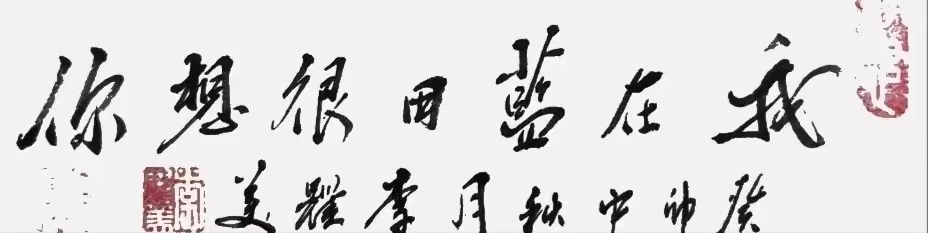 我在藍田很想你
癸卯中秋月李美